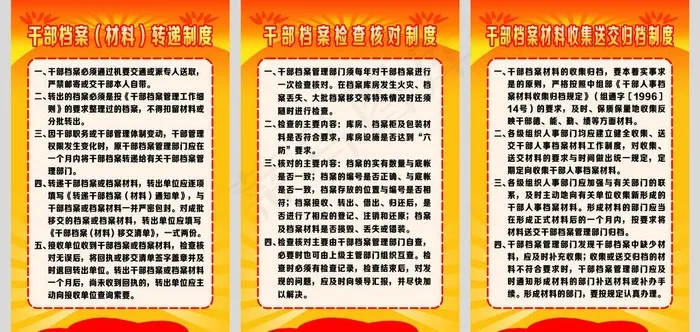 干部档案（材料）转递制度
一、干部档案必须通过机要交通或派专人送取，
严禁邮寄或交干部本人自带。
二、转出的档案必须是按《干部档案管理工作细
则》的要求整理过的档案，不得扣留材料或
分批转出。
三、因干部职务或干部管理体制变动，干部管理
权限发生变化时，原干部档案管理部门应在
一个月内将干部档案转递给有关干部档案管
理部门。
四、转递干部档案或档案材料，转出单位应逐项
填写《转递干部档案（材料）通知单》，与
干部档案或档案材料一并严密包封。对成批
移交的档案或档案材料，转出单位应填写
《干部档案（材料）移交清单》，一式两份。
五、接收单位收到干部档案或档案材料，检查核
对无误后，将回执或移交清单签字盖章并及
时退回转出单位。转出干部档案或档案材料
一个月后，尚未收到回执的，转出单位应主
动向接收单位查询索要。
干部档案检查核对制度
一、干部档案管理部门须每年对干部档案进行
一次检查核对。在档案库房发生火灾、档
案丢失、大批档案移交等特殊情况时还须
随时进行检查。
二、检查的主要内容：库房、档案柜及包装材
料是否符合要求，库房设施是否达到“六
防”要求。
三、核对的主要内容：档案的实有数量与底帐
是否一致；档案的编号是否正确、与底帐
是否一致，档案存放的位置与编号是否相
符；档案接收、转出、借出、归还后，是
否进行了相应的登记、注销和还原；档案
及档案材料是否损毁、丢失或错装。
四、检查核对主要由干部档案管理部门自查，
必要时也可由上级主管部门组织互查。检
查时必须有检查记录，检查结束后，对发
现的问题，应及时向领导汇报，并尽快加
以解决。
干部档案材料收集送交归档制度
一、干部档案材料的收集归档，要本着实事求
是的原则，严格按照中组部《干部人事档
案材料收集归档规定》（组通字［1996］
14号）的要求，及时、保质保量地收集反
映干部德、能、勤、绩等方面材料。
二、各级组织人事部门均应建立健全收集、送
交干部人事档案材料工作制度，对收集、
送交材料的要求与时间做出统一规定，定
期定向收集归档干部人事档案。
三、各级组织人事部门应加强与有关部门的联
系，及时主动地向有关单位收集新形成的
干部人事档案材料。形成材料的部门应当
在形成正式材料后的一个月内，按要求将
材料送交干部档案管理部门归档。
四、干部档案管理部门发现干部档案中缺少材
料，应及时补充收集；收集或送交归档的材
料不符合要求时，干部档案管理部门应及
时通知形成材料的部门补送材料或补办手
续。形成材料的部门，要按规定认真办理。